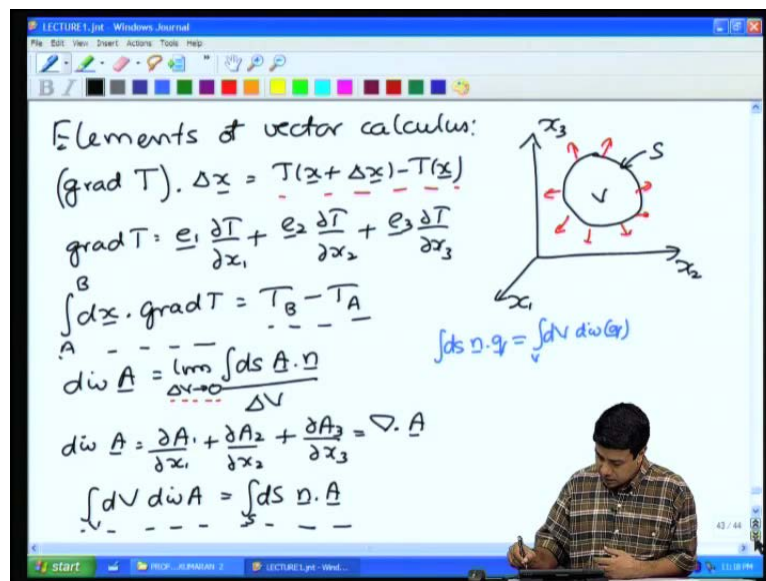 LECTURE1.jnt - Windows Journal
File Edit View Insert Actions Tools Help
B I
Elements of vector calculus:
(grad T). Δx = T(x + Δx) - T(x)
grad T = e₁ ∂T/∂x₁ + e₂ ∂T/∂x₂ + e₃ ∂T/∂x₃
∫_A^B dx . grad T = T_B - T_A
div A = lim_{ΔV→0} ∫ds A.n / ΔV
div A = ∂A₁/∂x₁ + ∂A₂/∂x₂ + ∂A₃/∂x₃ = ∇. A
∫_V dV div A = ∫_S dS n. A
x₃
S
V
x₂
x₁
∫ds n.q = ∫_V dV div(q)
43 / 44
start
PROF...KUMARAN 2
LECTURE1.jnt - Wind...
11:18 PM